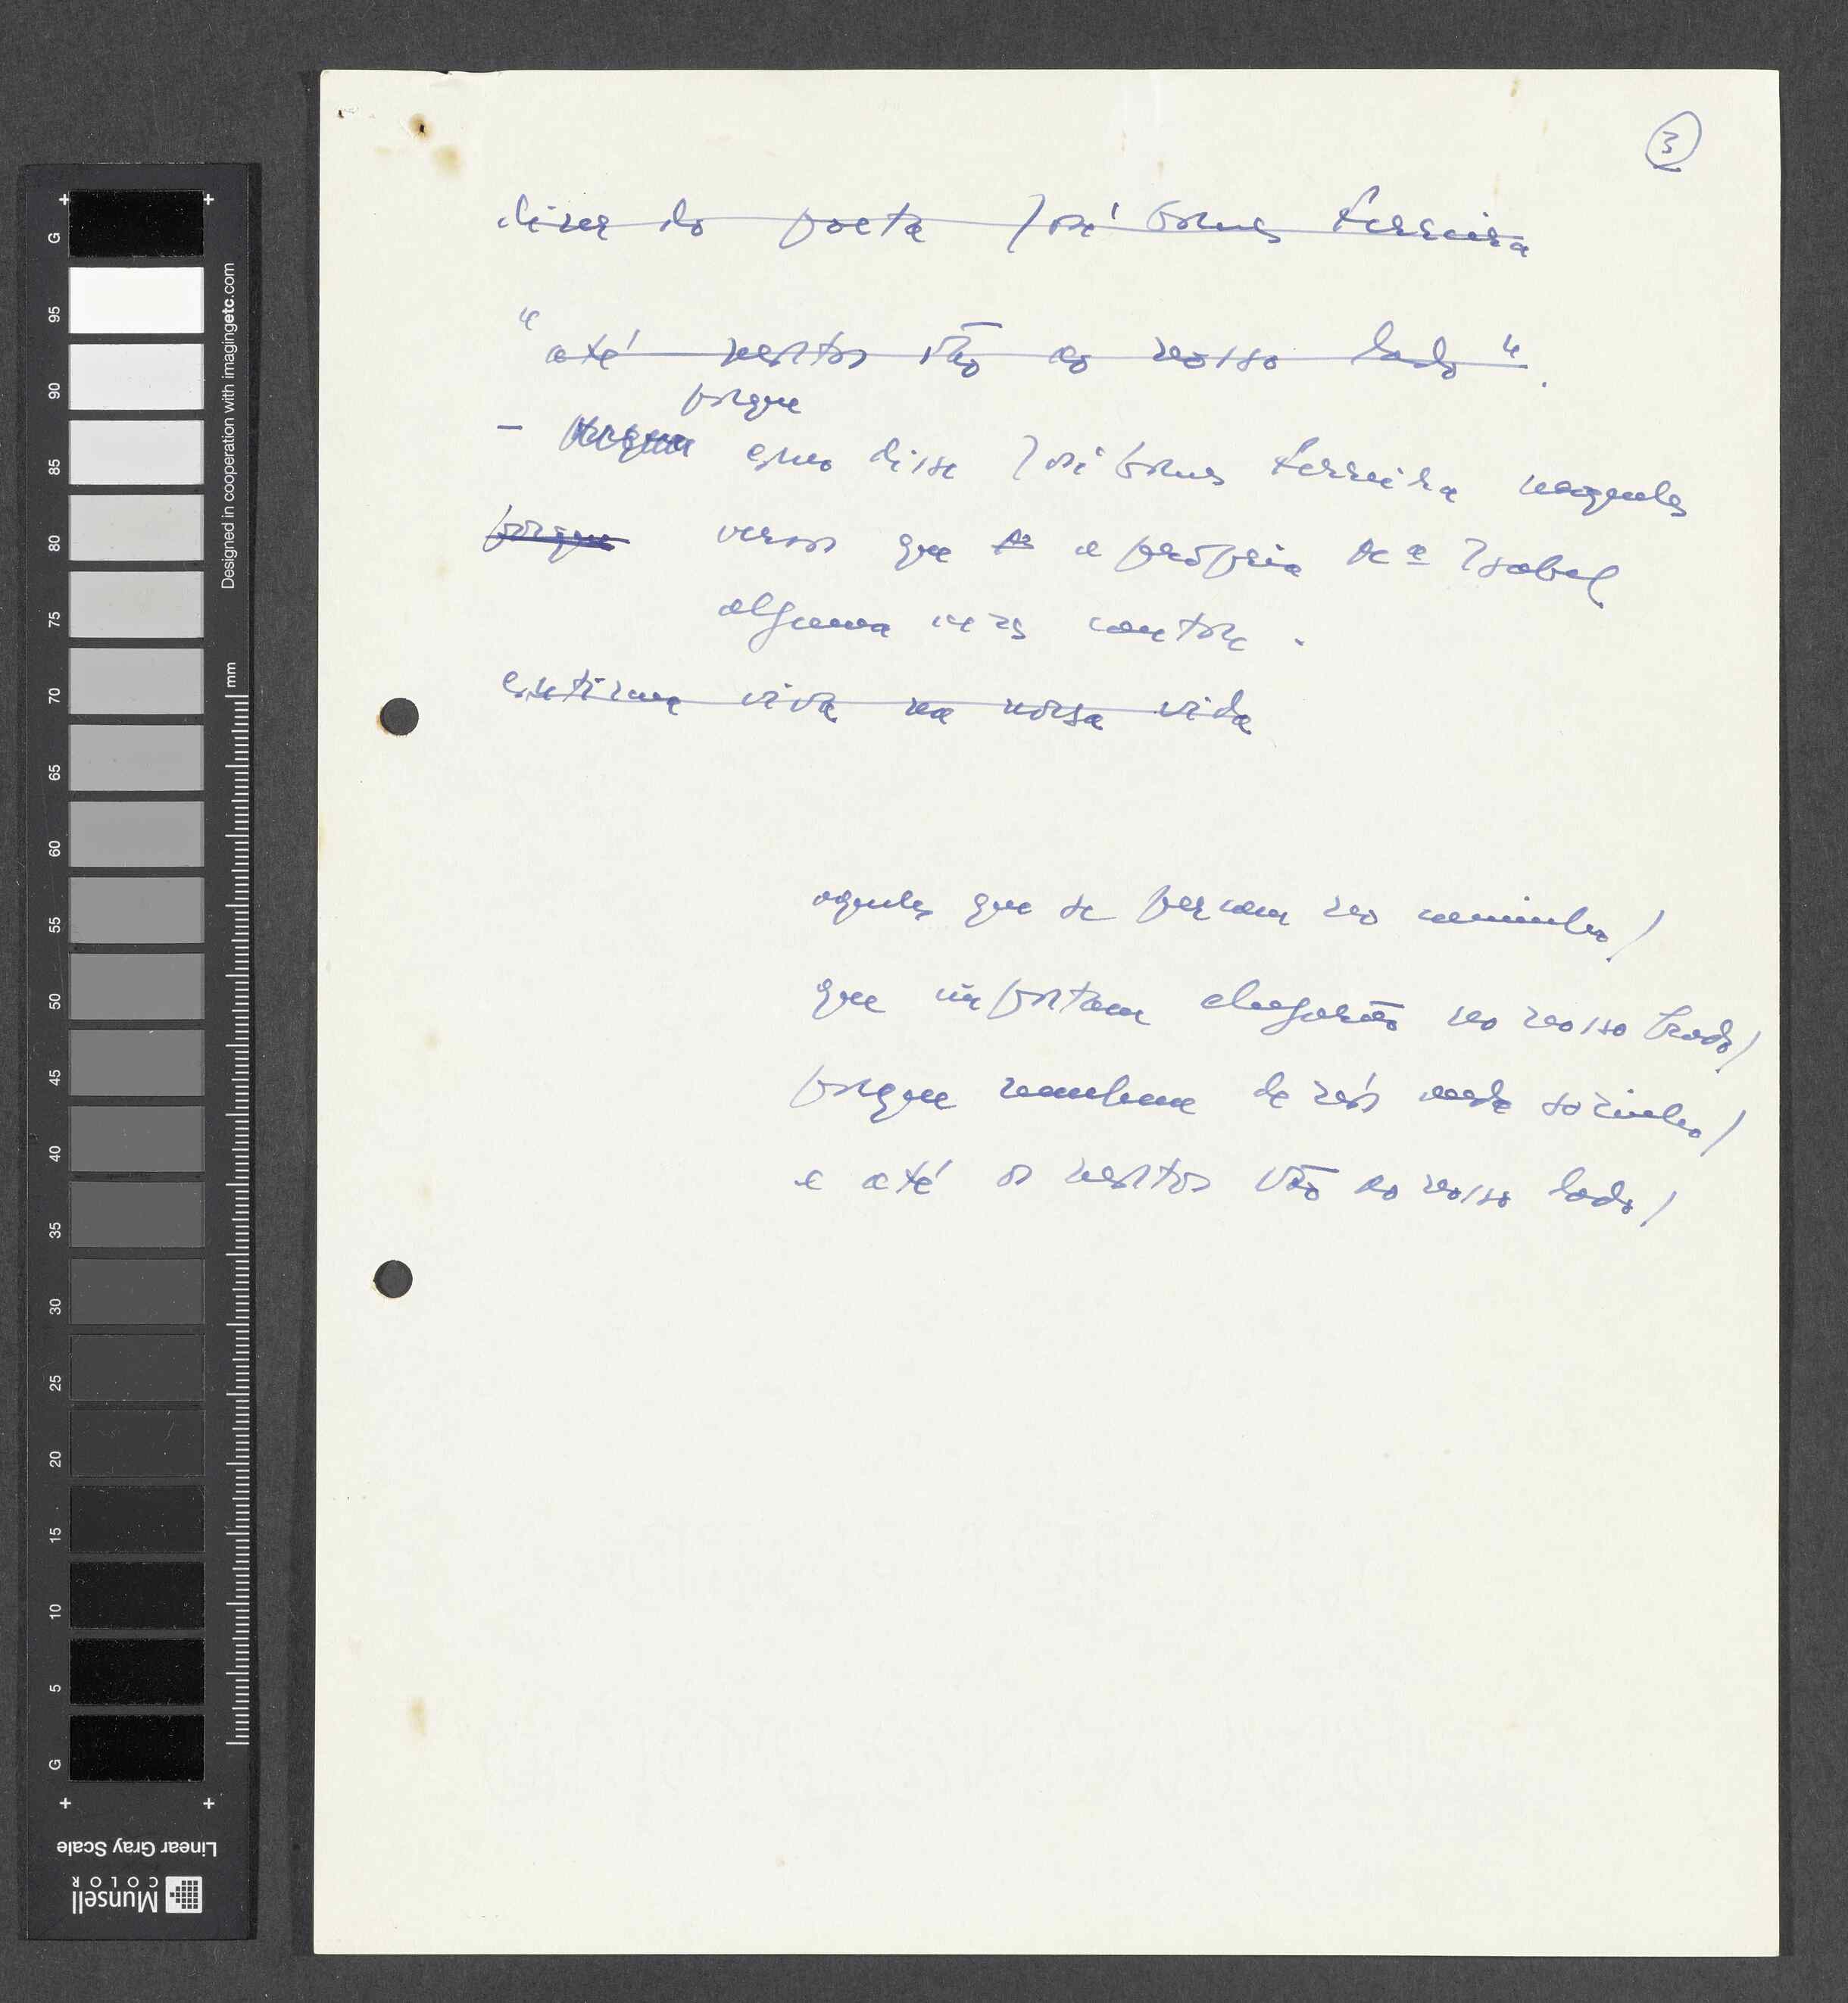 3
dizer do poeta José Gomes Ferreira
"até mortos vão ao nosso lado".
porque
- como disse José Gomes Ferreira naqueles
porque versos que a própria Drª Isabel
alguma vez cantou.
continua viva na nossa vida
aqueles que se percam no caminho/
que importam chegarão no nosso brado/
porque nenhum de nós anda sozinho/
e até os mortos vão ao nosso lado/
G
95
90
85
80
75
70
65
60
55
50
45
40
35
30
25
20
15
10
5
G
mm
Designed in cooperation with imagingetc.com
Linear Gray Scale
Munsell
COLOR